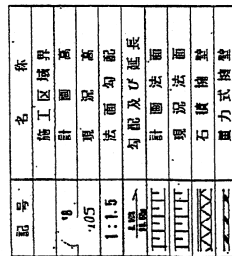 記号 名称
施工区域界
計画高
105 現況高
1:1.5 法面勾配
勾配及び延長
計画法面
現況法面
石積擁壁
重力式擁壁